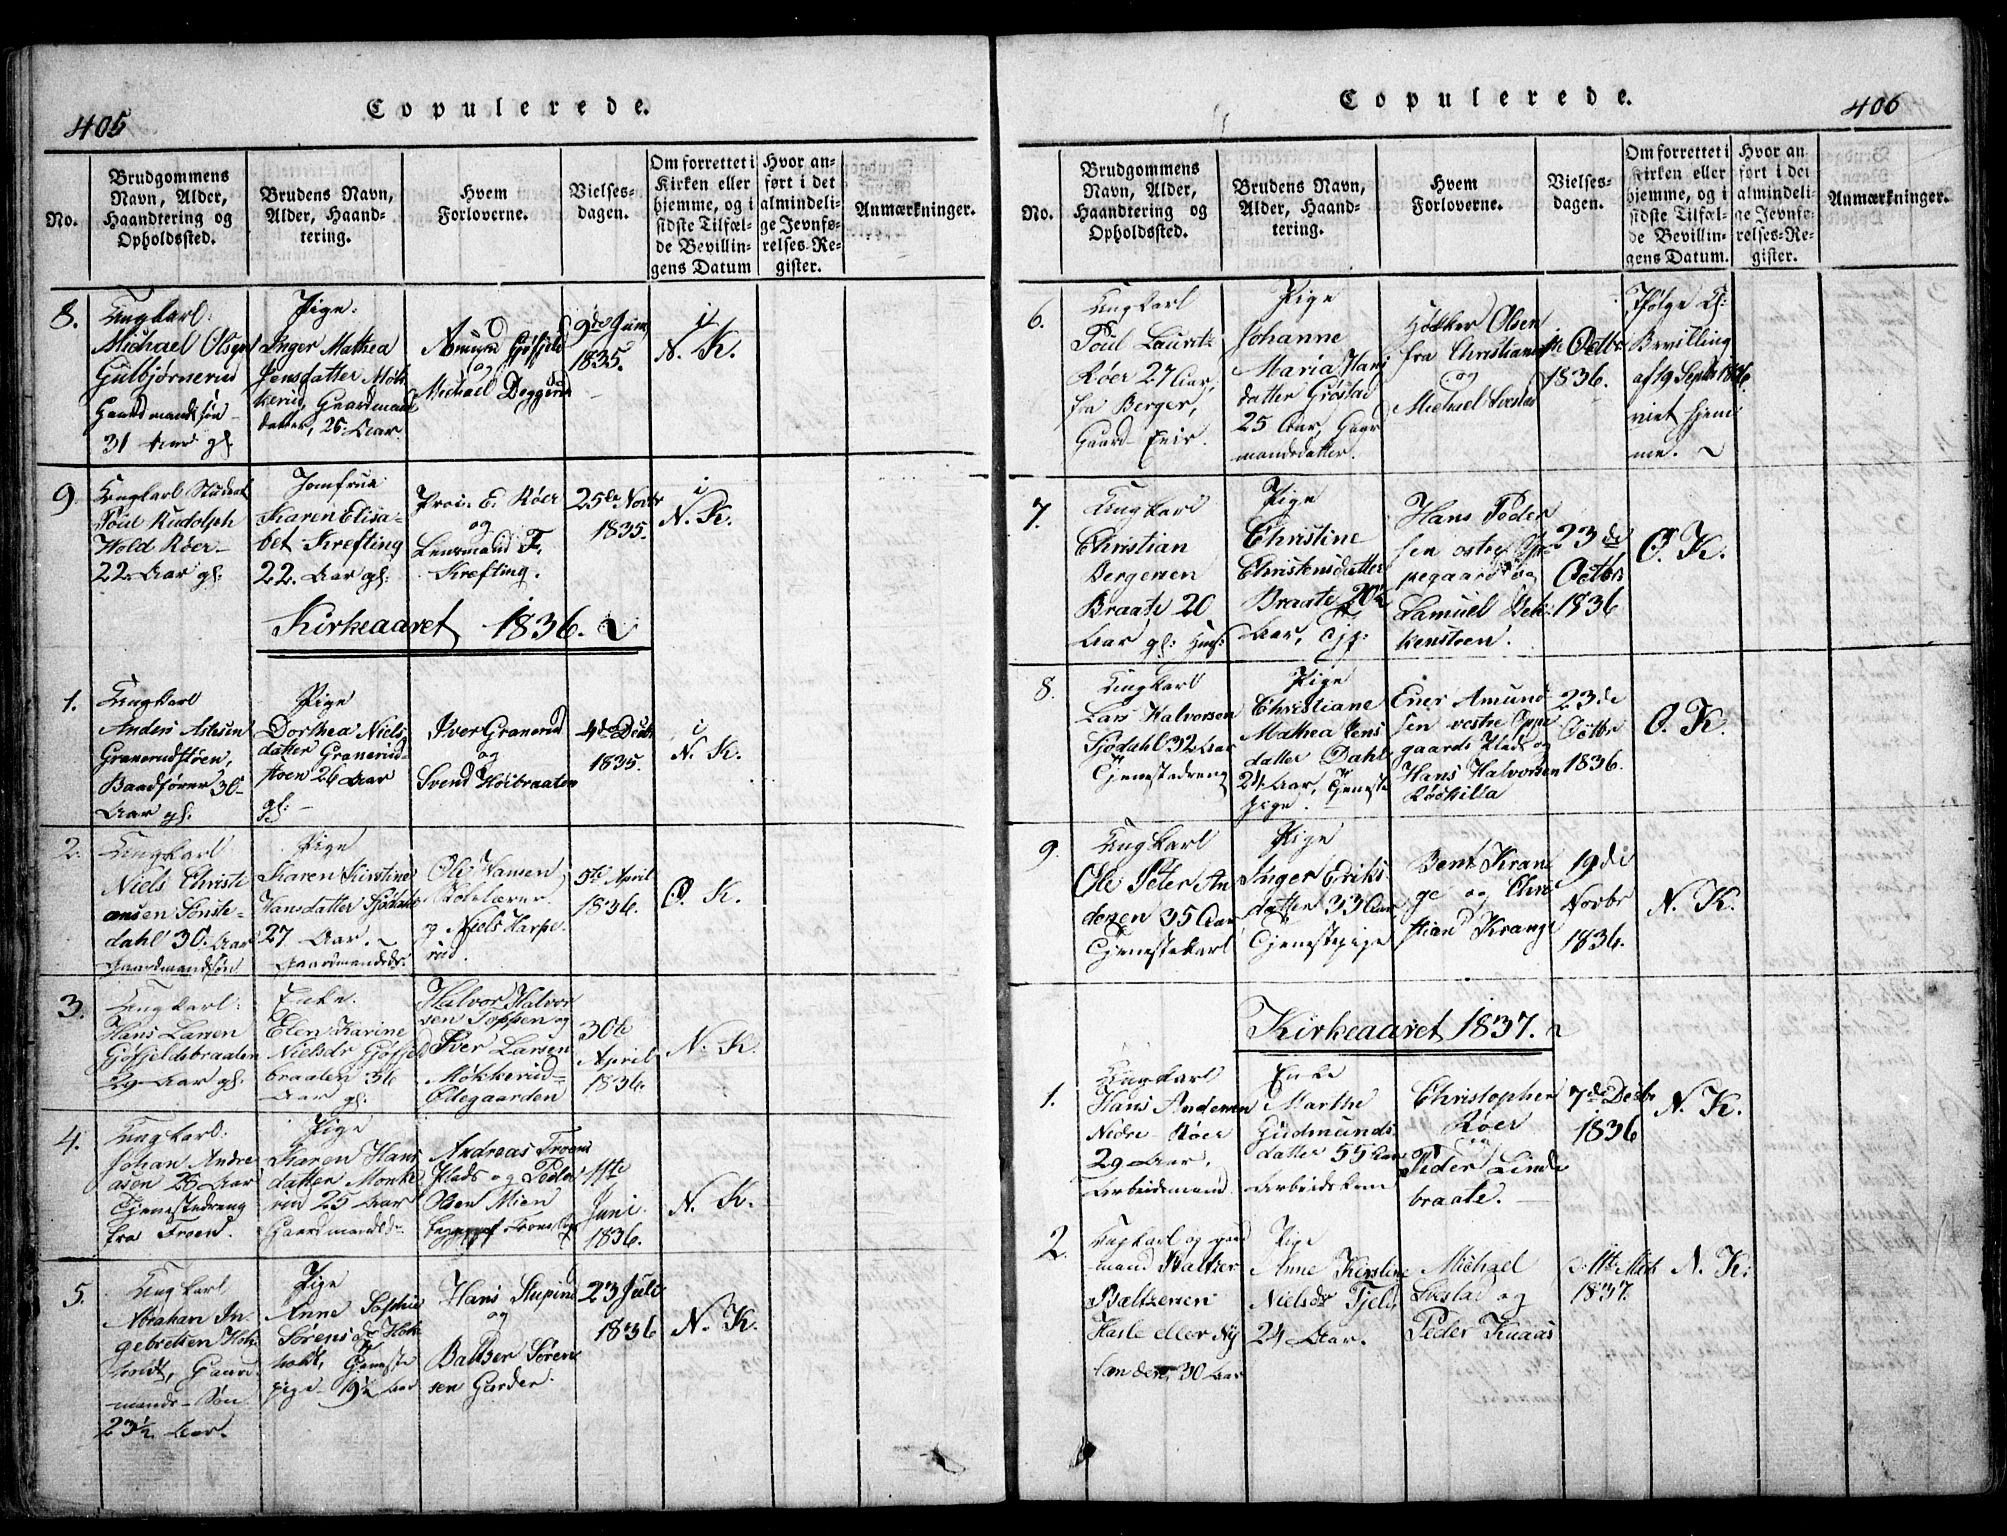 405
Copulerede.
No.
Brudgommens
Navn, Alder,
Haandtering og
Opholdssted.
Brudens Navn,
Alder, Haand-
tering.
Hvem
Forloverne.
Vielses-
dagen.
Om forrettet i
Kirken eller
hjemme, og i
sidste Tilfæl-
de Bevillin-
gens Datum
Hvor an-
ført i det
almindeli-
ge Jevnfø-
relses-Re-
gister.
Anmærkninger.
8.
Ungkarl:
Michael Olsen
Gulbjørnerud
Gaardmandsøn
31 Aar gl.
Pige:
Inger Mathea
Jensdatter Møk-
kerud, Gaardmands
datter, 26 Aar.
Amund Gjøfjeld
og
Michael Deggerud
9de Juni
1835.
i
N. K.
9.
Ungkarl Student
Poul Rudolph
Wold Røer
22 Aar gl:
Jomfrue
Karen Elisa-
bet Krefting
22. Aar gl:
Prov. E. Røer
og
Lensmand F.
Krefting.
25de Novbr
1835.
i
N. K.
Kirkeaaret 1836.
1.
Ungkarl
Anders Astesen
Granerudstøen,
Baadfører 30
Aar gl.
Pige
Dorthea Niels
datter Granerud-
støen 26 Aar
gl:
Iver Granerud
og
Svend Koibraaten
4de Decbr
1835.
i
N. K.
2.
Ungkarl
Niels Christi
ansen Sønste-
dahl 30. Aar
Gaardmandsøn
Pige
Karen Kirstine
Hansdatter Sjødahl
27 Aar.
Gaardmandsdr.
Ole Hansen
Skolelærer
og Niels Harpe
rud.
9de April
1836.
O. K.
3.
Ungkarl:
Hans Larsen
Gjøfjeldsbraaten
29 Aar gl.
Enke.
Elen Karine
Nielsdr Gjøfjeld
braaten 36
Aar gl.
Halvor Halvor
sen Toppen og
Iver Larsen
Møkkerud-
Ødegaarden
30te
April
1836.
N. K.
4.
Ungkarl.
Johan Andre
asen 28 Aar
Tjenestedreng
fra Froen.
Pige
Karen Hans
datter Monke
rud 25 Aar
Gaardmandsdr
Andreas Froens
Plads og Peder
11te
Juni
1836.
N. K.
5.
Ungkarl
Abraham In
gebretsen Hok
holdt, Gaard
mands-Søn
23½ Aar.
Pige
Anne Sophie
Sørensdr Hok
holdt, Tjeneste
pige 19½ Aar
Hans Stupine
og
Baltser Søren
sen Garder
23 Juli
1836
N. K.
Copulerede.
406
No.
Brudgommens
Navn, Alder,
Haandtering og
Opholdssted.
Brudens Navn,
Alder, Haand-
tering.
Hvem
Forloverne.
Vielses-
dagen.
Om forrettet i
Kirken eller
hjemme, og i
sidste Tilfæl-
de Bevillin-
gens Datum.
Hvor an
ført i det
almindeli-
ge Jevnfø-
relses-Re-
gister.
Anmærkninger.
6.
Ungkarl
Poul Lauritz
Røer 27 Aar,
fra Berger,
Gaard
Pige
Johanne
Maria Hans
datter Grøstad
25 Aar, Gaar
mandsdatter.
Høkker Olsen
fra Christiania
og
Michael Svestad
Octbr
1836.
Ifølge
Bevilling
af 19 Septbr 1836
viet hjem
me.
7.
Ungkarl
Christian
Bergersen
Braate 20
Aar gl:
Pige
Christine
Christensdatter
Braate 20½
Aar,
Hans Peder
sen østre Op
pegaard og
Samuel Bek
kensteen.
23de
Octbr
1836
O. K.
8.
Ungkarl
Lars Halvorsen
Sjødahl 32 Aar
Tjenestedreng
Pige
Christiane
Mathea Jens
datter Dahl
24 Aar, Tjeneste
pige.
Erier Amund
sen vestre Oppe
gaards Plads og
Hans Halvorsen
Roskilla
23de
Octbr
1836.
O. K.
9.
Ungkarl
Ole Peter An
dersen 35 Aar
Tjenestekarl
Pige
Inger Eriks
datter 33 Aar
Tjenestepige
Bent Kran
ge og Chri
stian Krange
19de
Novbr
1836.
N. K.
Kirkeaaret 1837.
1.
Ungkarl
Hans Andersen
Nedre Røer
29 Aar,
Arbeidsmand
Enke
Marthe
Gudmunds
datter 55 Aar
Christopher
Røer
og
Peder Linde
braate.
7de Decbr
1836
N. K.
2.
Ungkarl og gaard
mand Baltzer
Baltzersen
Hasle eller Ny
landen, 30 Aar
Pige
Anne Kirstine
Nielsdr Fjeld
24 Aar.
Michael
Svestad og
Peder Knaas
1837.
N. K.